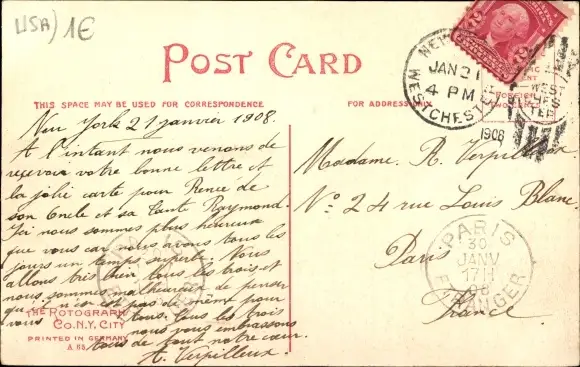 USA) 1€
POST CARD
THIS SPACE MAY BE USED FOR CORRESPONDENCE
FOR ADDRESS ONLY
NEW
WESTCHESTER
JAN 21
4 PM
1908
WES
CHES
TER
2 2
New York 21 janvier 1908.
A l'instant nous venons de
recevoir votre bonne lettre et
la jolie carte pour Renée de
son Oncle et sa Tante Raymond.
Ici nous sommes plus heureux
que vous car nous avons tous les
jours un temps superbe. Nous
allons très bien tous les trois et
nous sommes malheureux de penser
qu'il n'en est pas de même pour
vous tous. Tous les trois
nous vous embrassons
tous de tout notre cœur.
A. Verpilleux.
THE ROTOGRAPH
CO. N.Y. CITY
PRINTED IN GERMANY
Madame R. Verpilleux
Nº 24 rue Louis Blanc.
Paris
France
PARIS
30
JANV
17H
08
ETRANGER